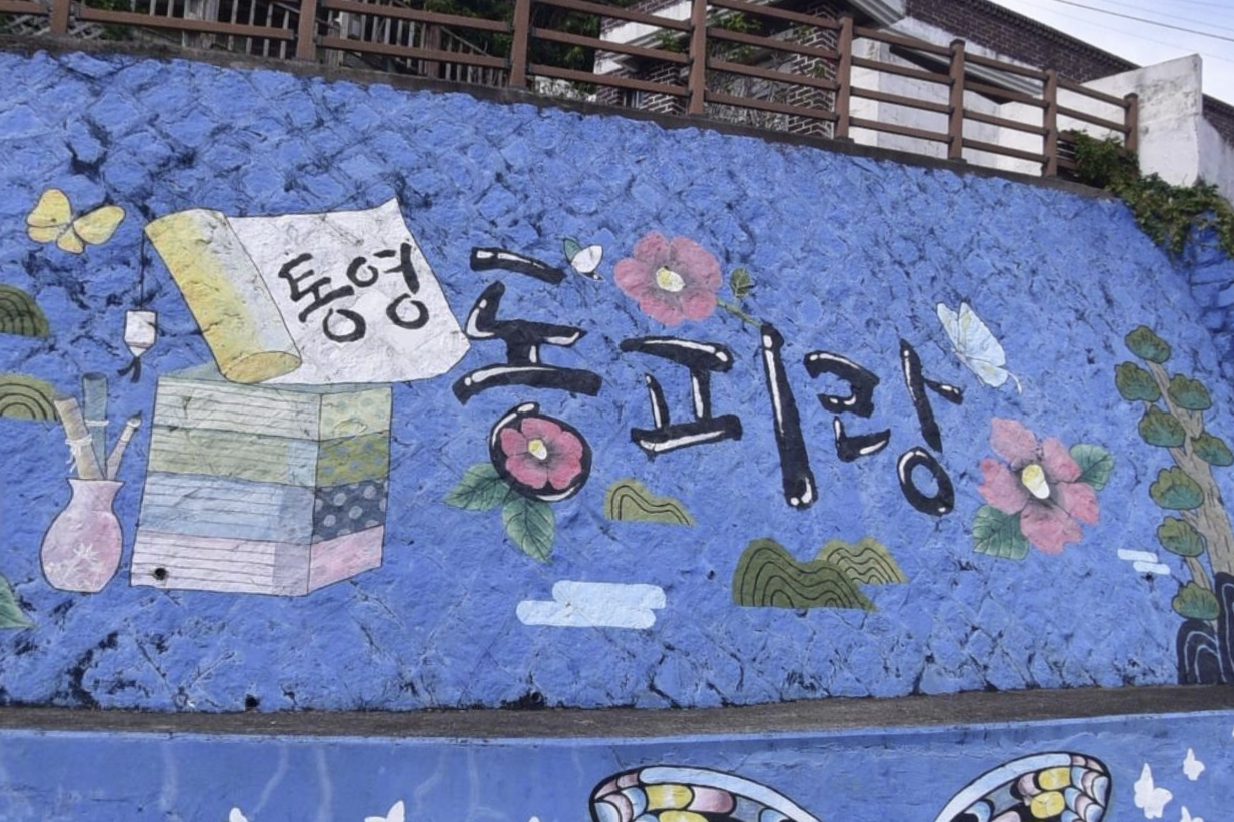 통영
동피랑